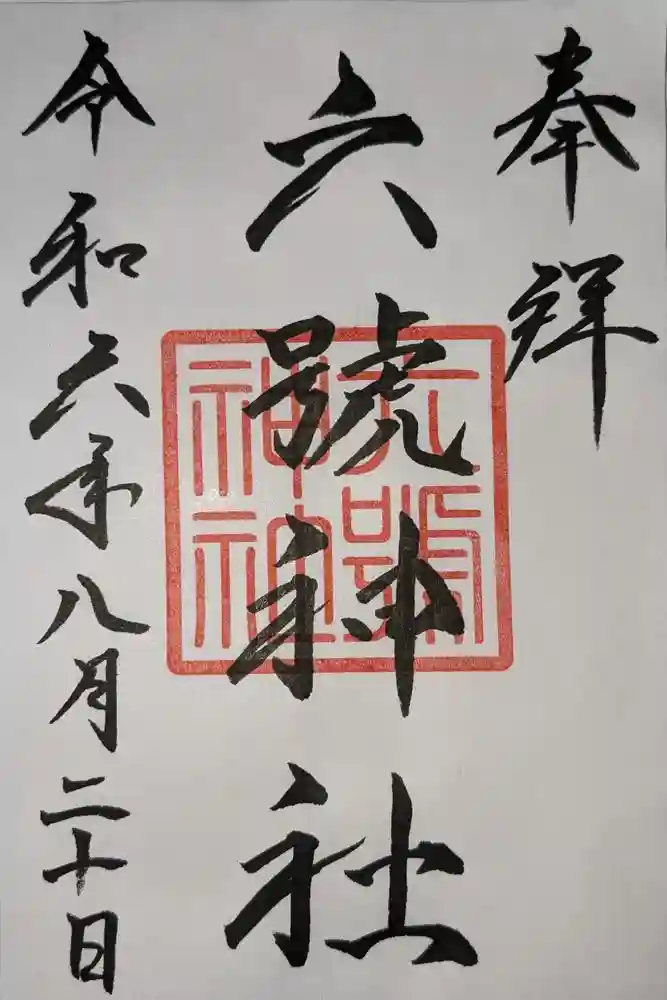 奉拜
六號神社
六號神社
令和六年八月二十日